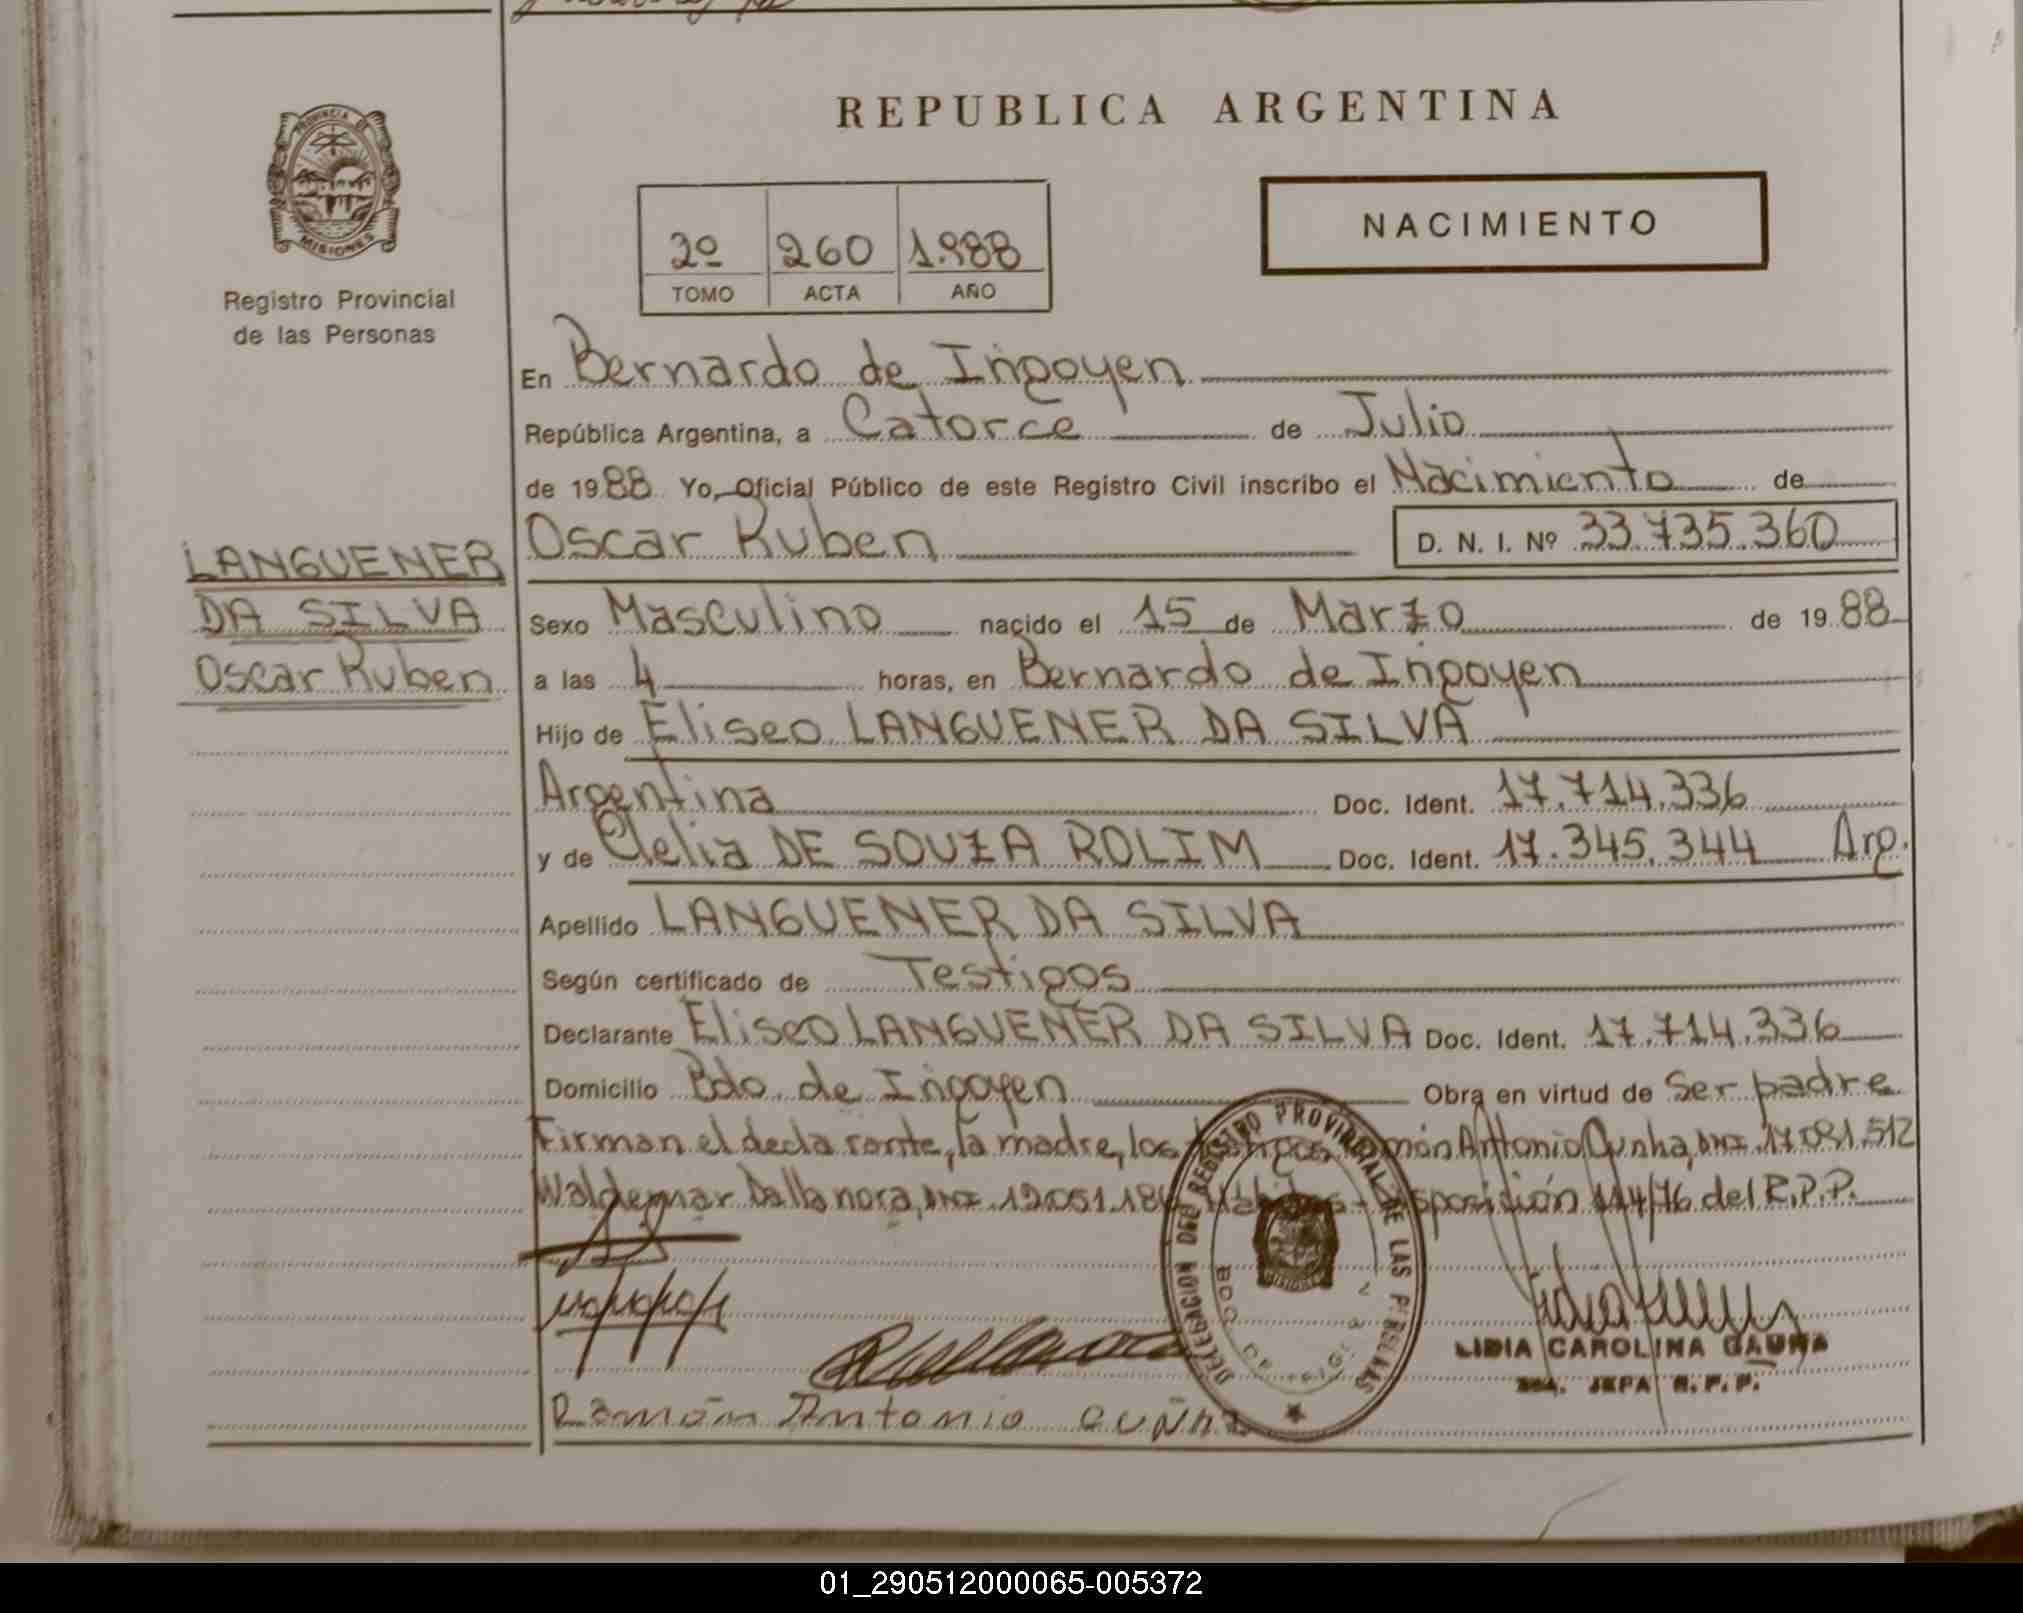 REPUBLICA ARGENTINA
PROVINCIA DE
MISIONES
Registro Provincial
de las Personas
NACIMIENTO
2º 260 1.988
TOMO ACTA AÑO
En Bernardo de Irigoyen
República Argentina, a Catorce de Julio
de 1988 Yo, Oficial Público de este Registro Civil inscribo el Nacimiento de
Oscar Ruben D. N. I. Nº 33.735.360
LANGUENER
DA SILVA
Oscar Ruben
Sexo Masculino nacido el 15 de Marzo de 1988
a las 4 horas, en Bernardo de Irigoyen
Hijo de Eliseo LANGUENER DA SILVA
Argentina Doc. Ident. 17.714.336
y de Clelia DE SOUZA ROLIM Doc. Ident. 17.345.344 Arg.
Apellido LANGUENER DA SILVA
Según certificado de Testigos
Declarante Eliseo LANGUENER DA SILVA Doc. Ident. 17.714.336
Domicilio Bdo. de Irigoyen Obra en virtud de Ser padre
Firman el declarante, la madre, los testigos Ramón Antonio Cunha, DNI. 17.081.512
Waldemar Dallanora, DNI. Disposición 114/76 del R.P.P.
DELEGACION DEL REGISTRO PROVINCIAL DE LAS PERSONAS
LIDIA CAROLINA GAUNA
JEFA R.P.P.
Ramón Antonio CUÑHA
01_290512000065-005372